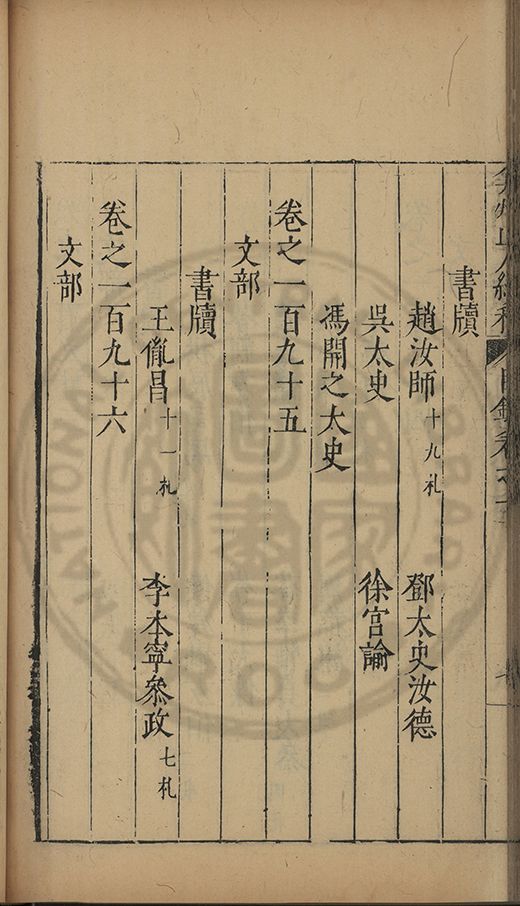 書牘
趙汝師十九札 鄧太史汝德
吳太史 徐宮諭
馮開之太史
卷之一百九十五
文部
書牘
王胤昌十一札 李本寧叅政七札
卷之一百九十六
文部